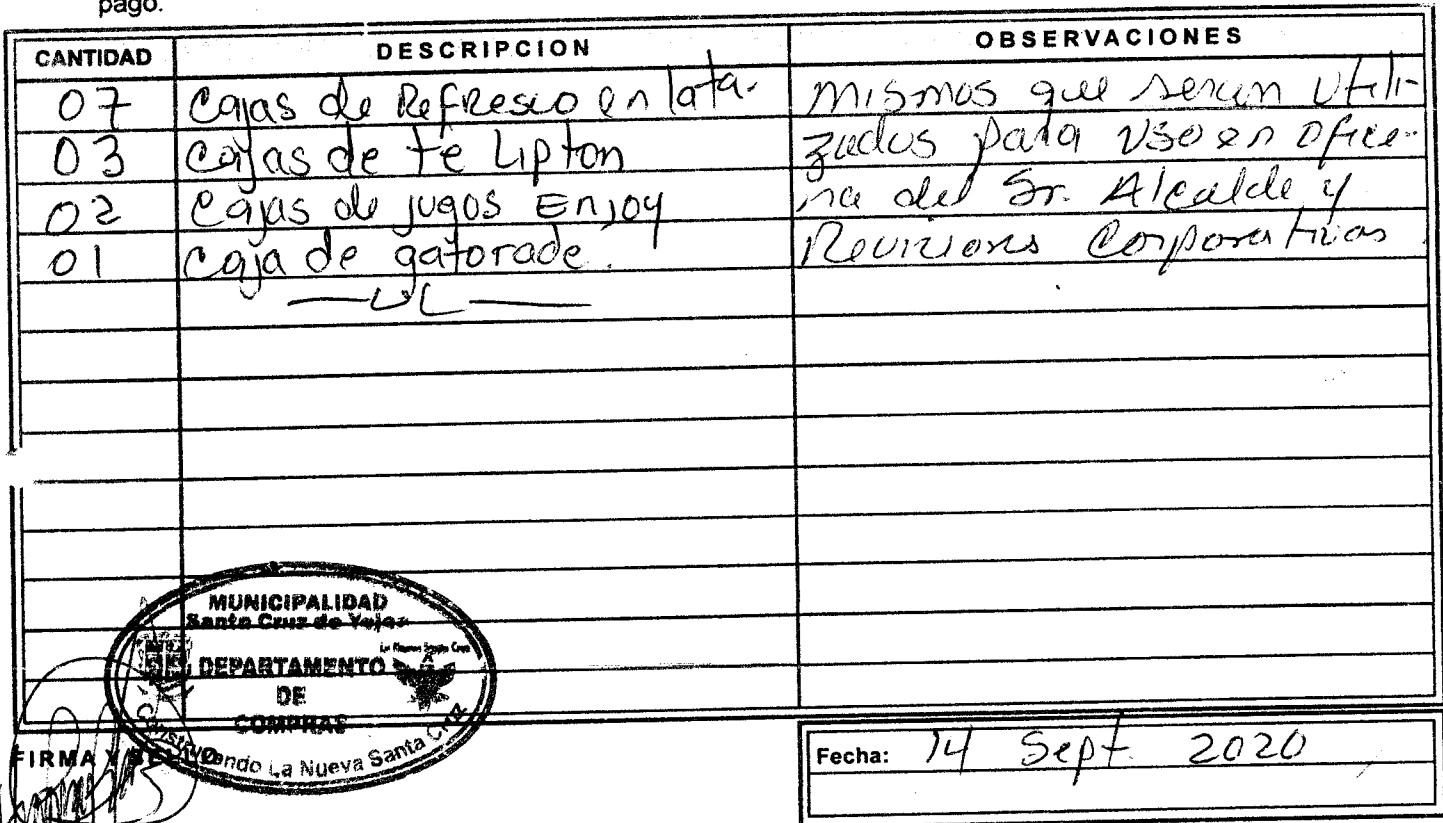 pago.
CANTIDAD DESCRIPCION OBSERVACIONES
07 Cajas de Refresco en lata. mismos que seran utili-
03 Cajas de te Lipton zados para uso en ofici-
02 Cajas de jugos Enjoy na del Sr. Alcalde y
01 Caja de gatorade. Reuniones Corporativas
MUNICIPALIDAD
Santa Cruz de Yojoa
La Nueva Santa Cruz
DEPARTAMENTO
DE
COMPRAS
Construyendo La Nueva Santa Cruz
FIRMA Y SELLO
Fecha: 14 Sept. 2020